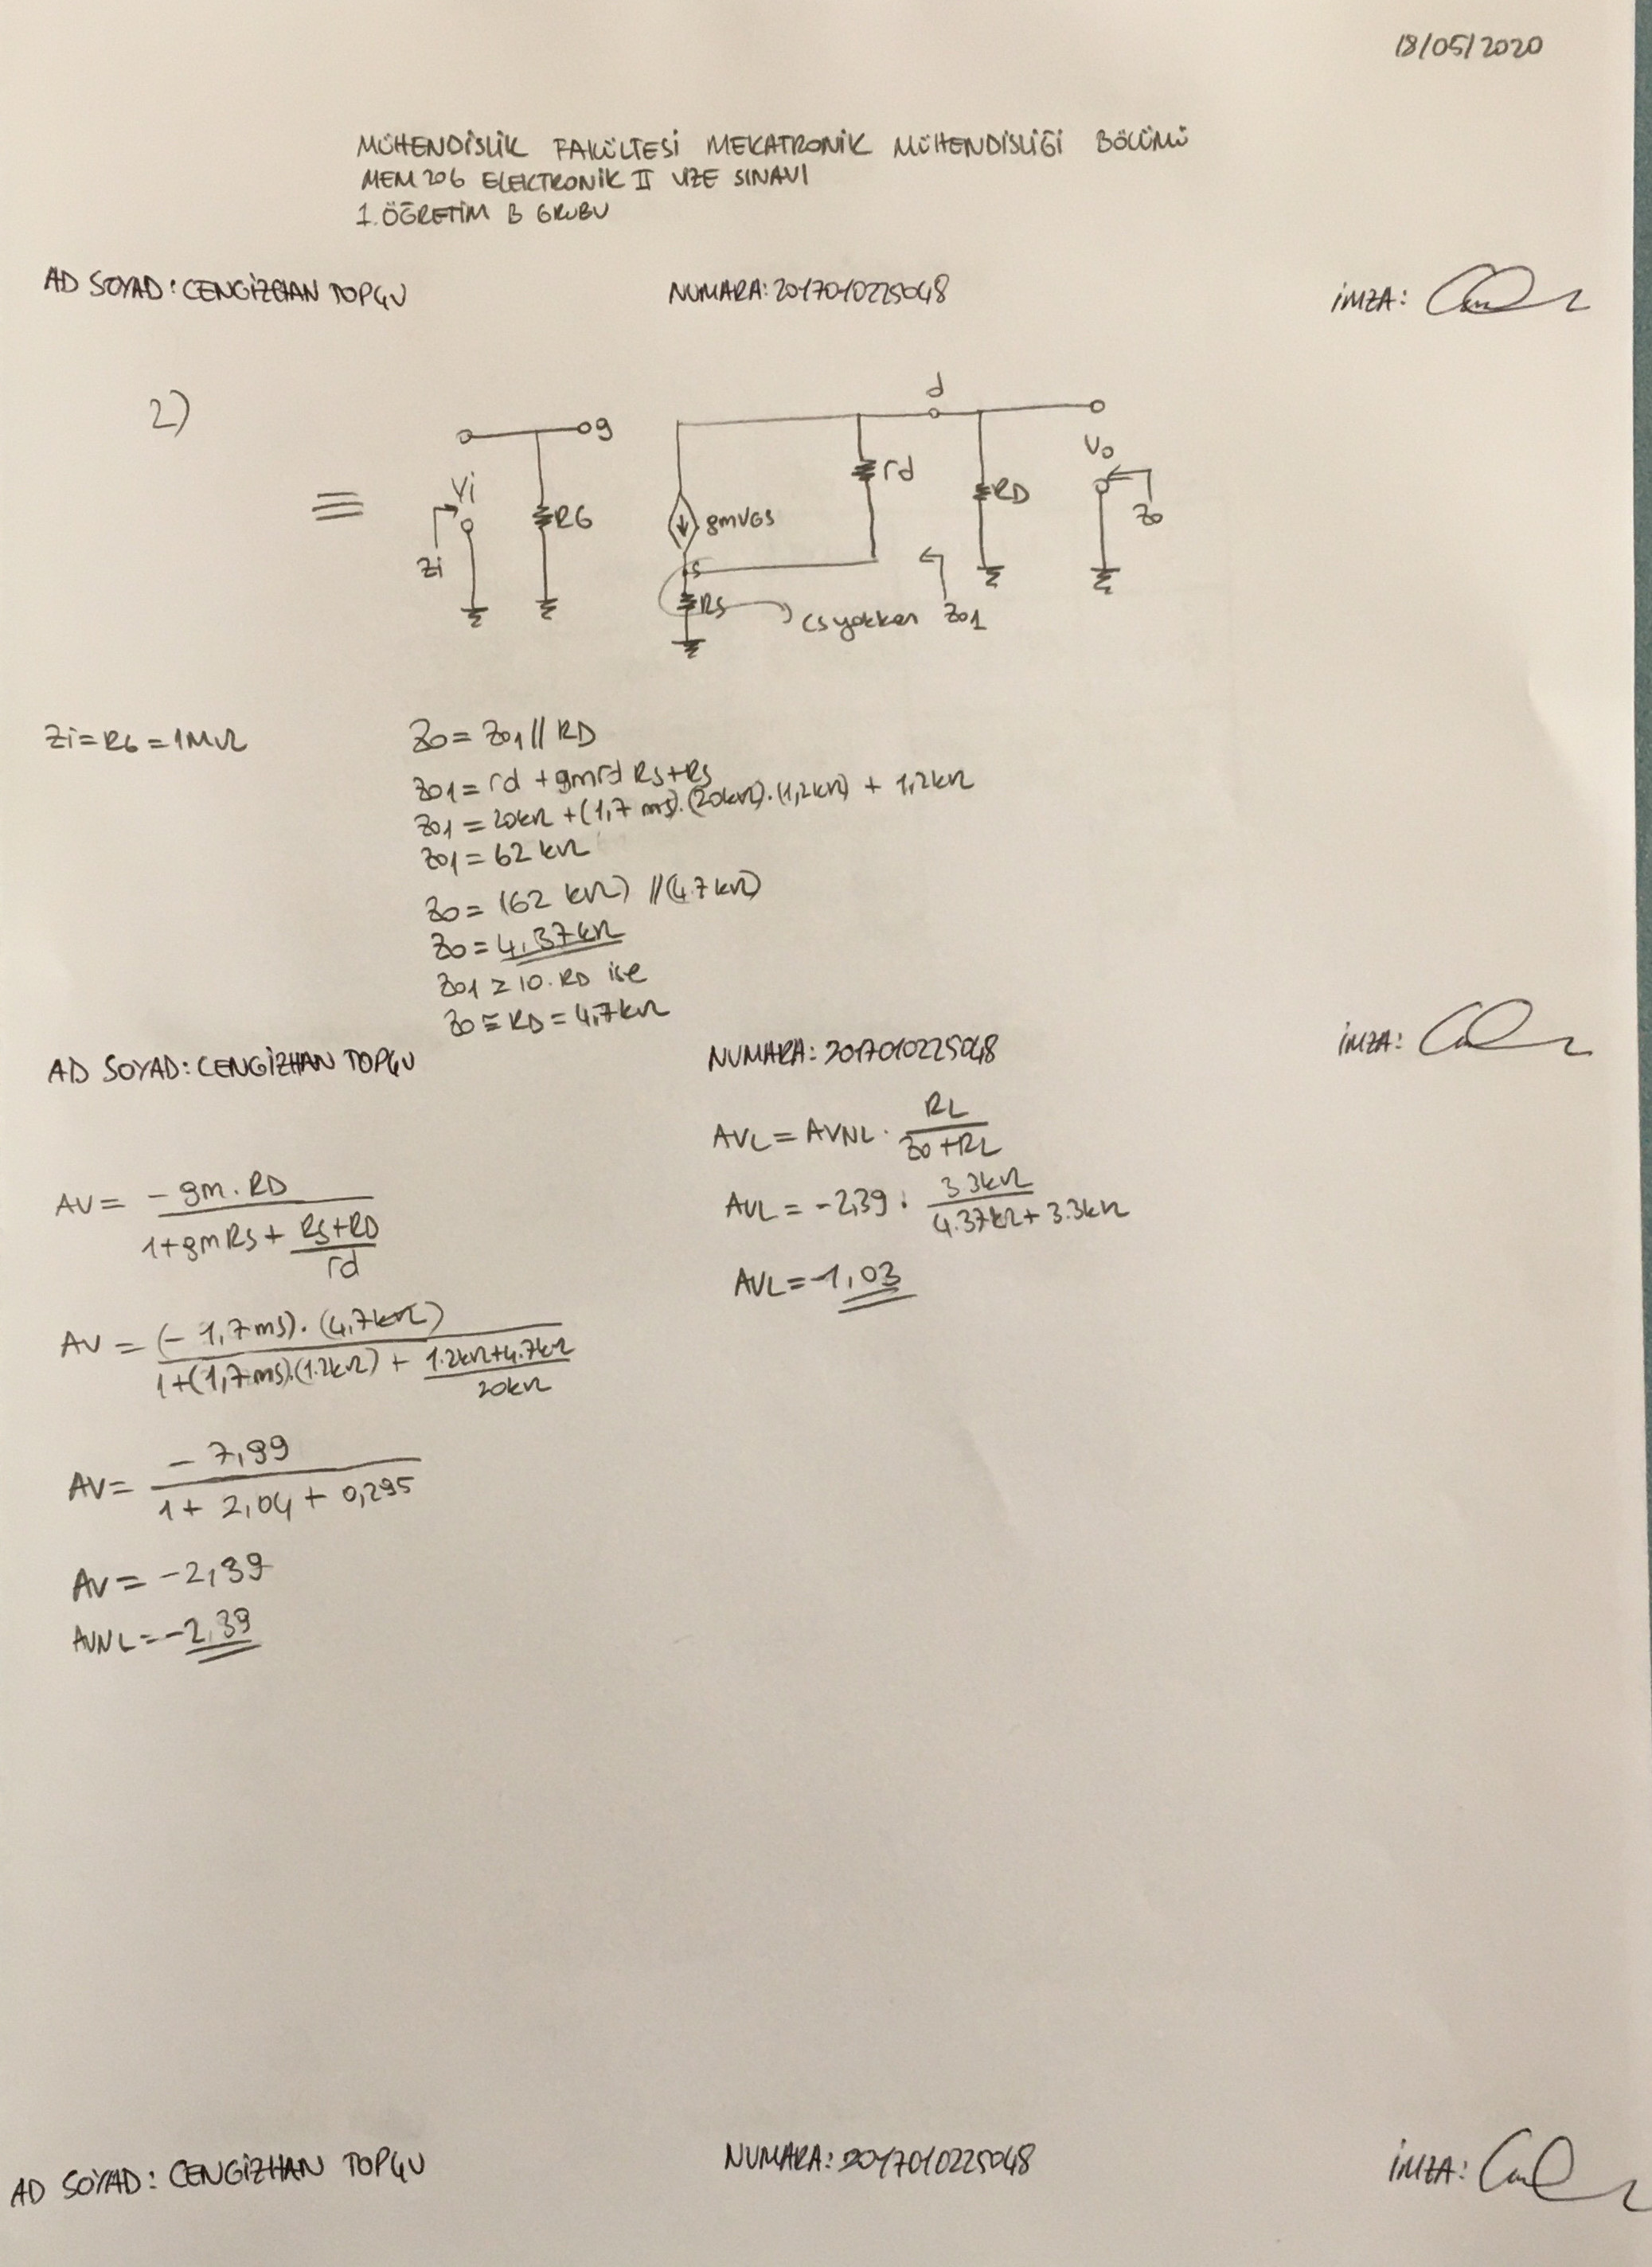 18/05/2020
MÜHENDİSLİK FAKÜLTESİ MEKATRONİK MÜHENDİSLİĞİ BÖLÜMÜ
MEM 206 ELEKTRONİK II VİZE SINAVI
1.ÖĞRETİM B GRUBU
AD SOYAD: CENGİZHAN TOPÇU NUMARA: 2017010225048 İMZA:
2)
≡
g
d
Vi
RG
Zi
gmVGS
rd
RD
Vo
Zo
s
RS
Cs yokken
Zo1
Zi = RG = 1MΩ
Zo = Zo1 // RD
Zo1 = rd + gmrd RS + RS
Zo1 = 20kΩ + (1,7 ms).(20kΩ).(1,2kΩ) + 1,2kΩ
Zo1 = 62 kΩ
Zo = (62 kΩ) // (4.7 kΩ)
Zo = 4.37kΩ
Zo1 ≥ 10.RD ise
Zo ≅ RD = 4,7kΩ
AD SOYAD: CENGİZHAN TOPÇU NUMARA: 2017010225048 İMZA:
AV = - gm. RD / 1 + gm RS + RS+RD / rd
AV = (- 1,7ms). (4,7kΩ) / 1+(1,7ms).(1.2kΩ) + 1.2kΩ+4.7kΩ / 20kΩ
AV = - 7,99 / 1 + 2,04 + 0,295
AV = -2,39
AVNL = -2,39
AVL = AVNL . RL / Zo + RL
AVL = -2,39 . 3.3kΩ / 4.37kΩ + 3.3kΩ
AVL = -1,03
AD SOYAD: CENGİZHAN TOPÇU NUMARA: 2017010225048 İMZA: